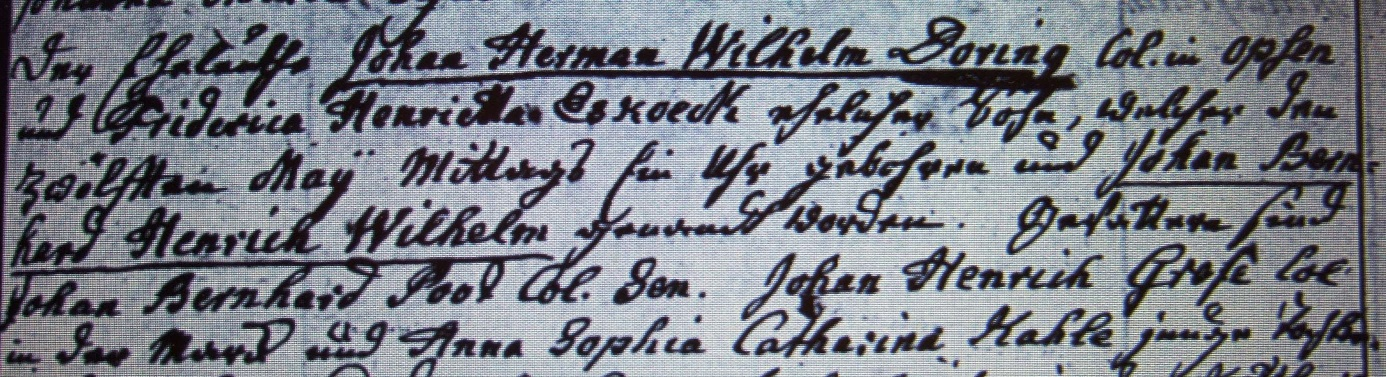 Der Eheleuthe Johan Herman Wilhelm Doring Col. in Opsen
und Friderica Henrietta Eskoeck ehelicher Sohn, welcher den
zwölften Maÿ Mittags Ein Uhr gebohren und Johan Bern-
herd Henrich Wilhelm genandt worden. Gevattern sind
Johan Bernhard Pool Col. Sen. Johan Henrich Grose Col.
in der und Anna Sophia Catharina Kahle junge